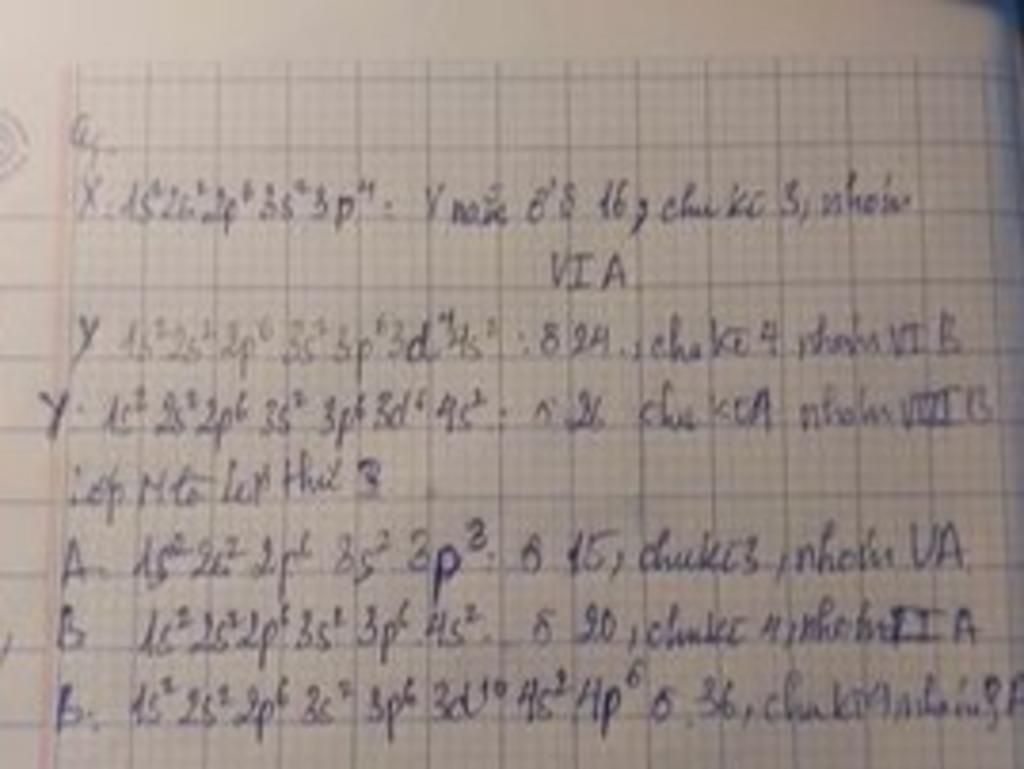 X: 1s²2s²2p⁶3s²3p⁴. Y nằm ở ô 16, chu kì 3, nhóm
VIA
Y 1s²2s²2p⁶ 3s²3p⁶3d⁴4s² : ô 24, chu kì 4 nhóm VIB
Y: 1s² 2s²2p⁶ 3s² 3p⁶3d⁶ 4s² : ô 26 chu kì 4 nhóm VIIIB
Lớp M là lớp thứ 3
A. 1s²2s² 2p⁶ 3s² 3p³: ô 15, chu kì 3, nhóm VA
B 1s²2s²2p⁶3s² 3p⁶ 4s². ô 20, chu kì 4, nhóm IIA
B. 1s² 2s² 2p⁶ 3s² 3p⁶ 3d¹⁰ 4s² 4p⁶ ô 36, chu kì 4 nhóm